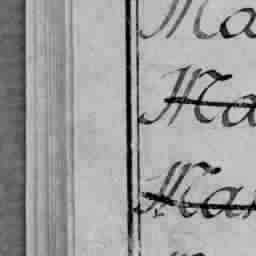 Ma
Ma
Mar